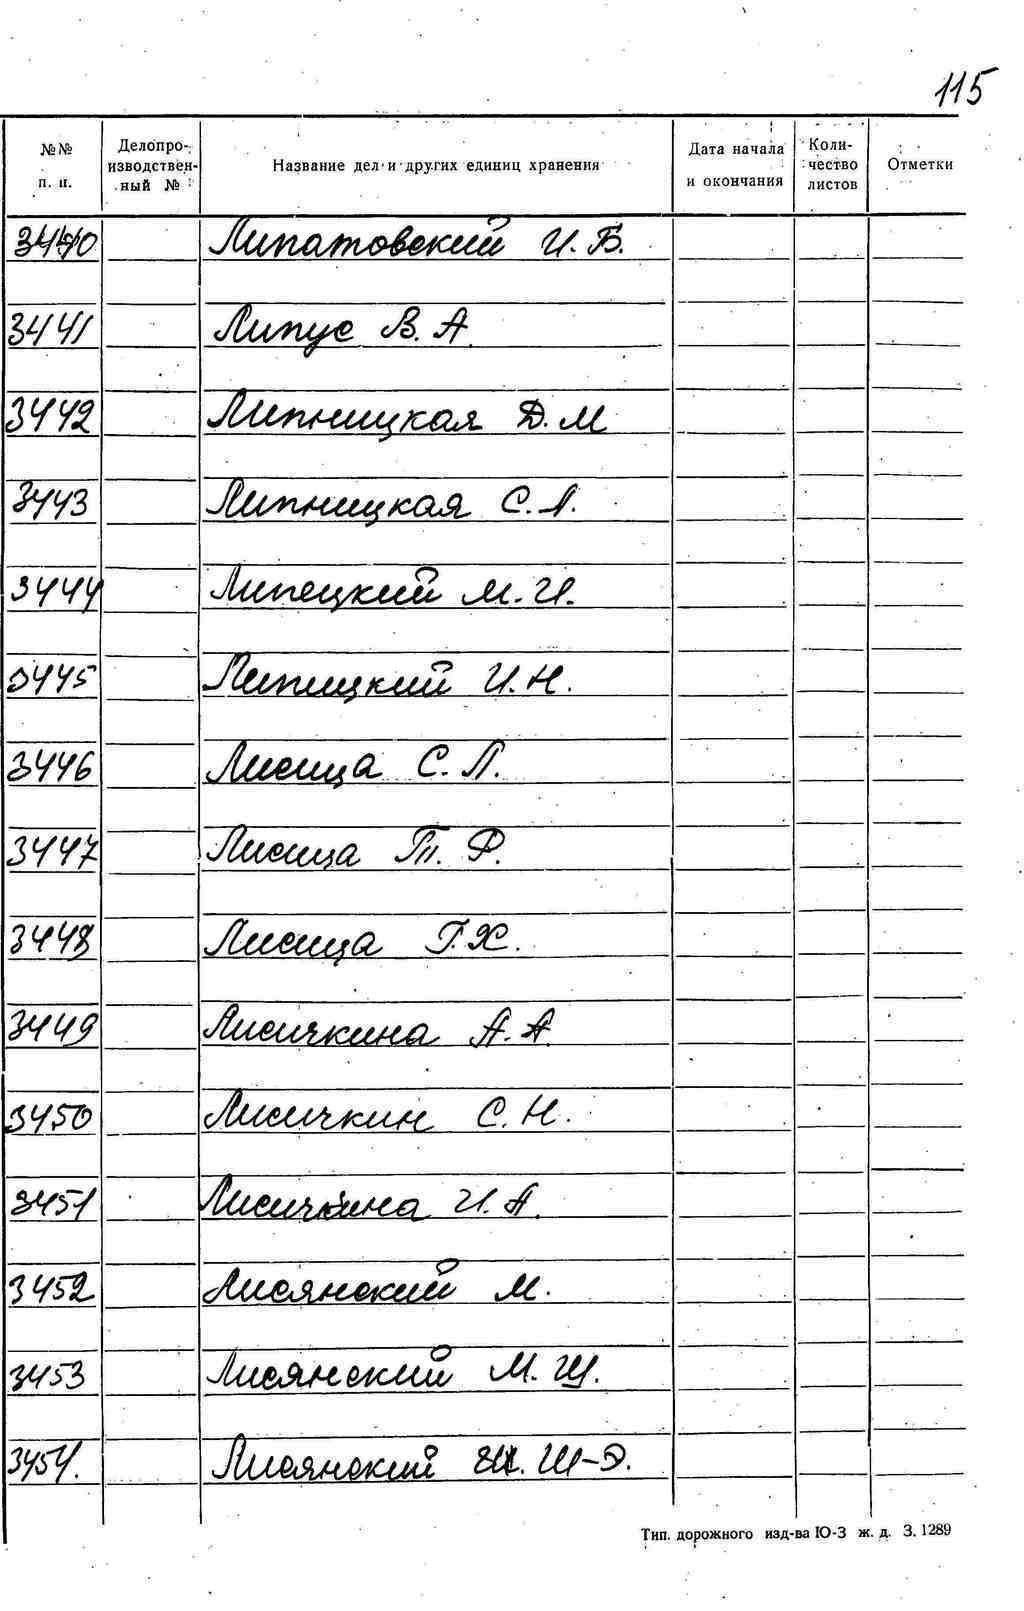 115
№№ п. п.
Делопроизводственный №
Название дел и других единиц хранения
Дата начала и окончания
Количество листов
Отметки
3440 Липатовский И. Б.
3441 Липус В. А.
3442 Липницкая Д. М
3443 Липницкая С. Л.
3444 Липецкий М. И.
3445 Липицкий И. Н.
3446 Лисица С. Л.
3447 Лисица Т. Ф.
3448 Лисица Г. Х.
3449 Лисичкина А. А.
3450 Лисичкин С. Н.
3451 Лисичкина И. А.
3452 Лисянский М.
3453 Лисянский М. Ш.
3454. Лисянский Ш-Э.
Тип. дорожного изд-ва Ю-З ж. д. З. 1289